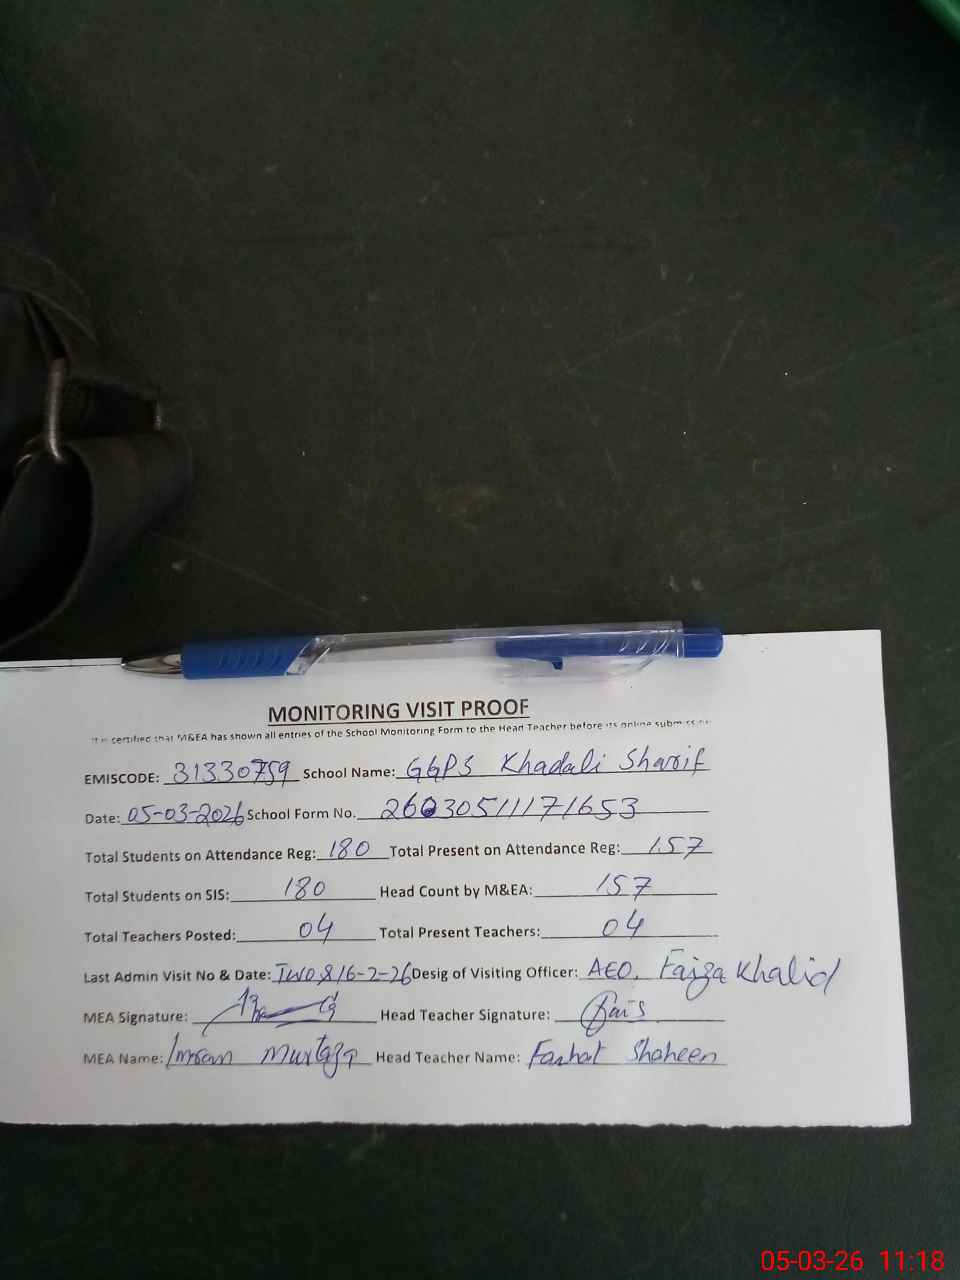 MONITORING VISIT PROOF
It is certified that M&EA has shown all entries of the School Monitoring Form to the Head Teacher before its online submission
EMISCODE: 31330759 School Name: GGPS Khadali Sharif
Date: 05-03-2026 School Form No. 26030511171653
Total Students on Attendance Reg: 180 Total Present on Attendance Reg: 157
Total Students on SIS: 180 Head Count by M&EA: 157
Total Teachers Posted: 04 Total Present Teachers: 04
Last Admin Visit No & Date: Two & 16-2-26 Desig of Visiting Officer: AEO, Faiza Khalid
MEA Signature: Head Teacher Signature:
MEA Name: Imran Murtaza Head Teacher Name: Farhat Shaheen
05-03-26 11:18